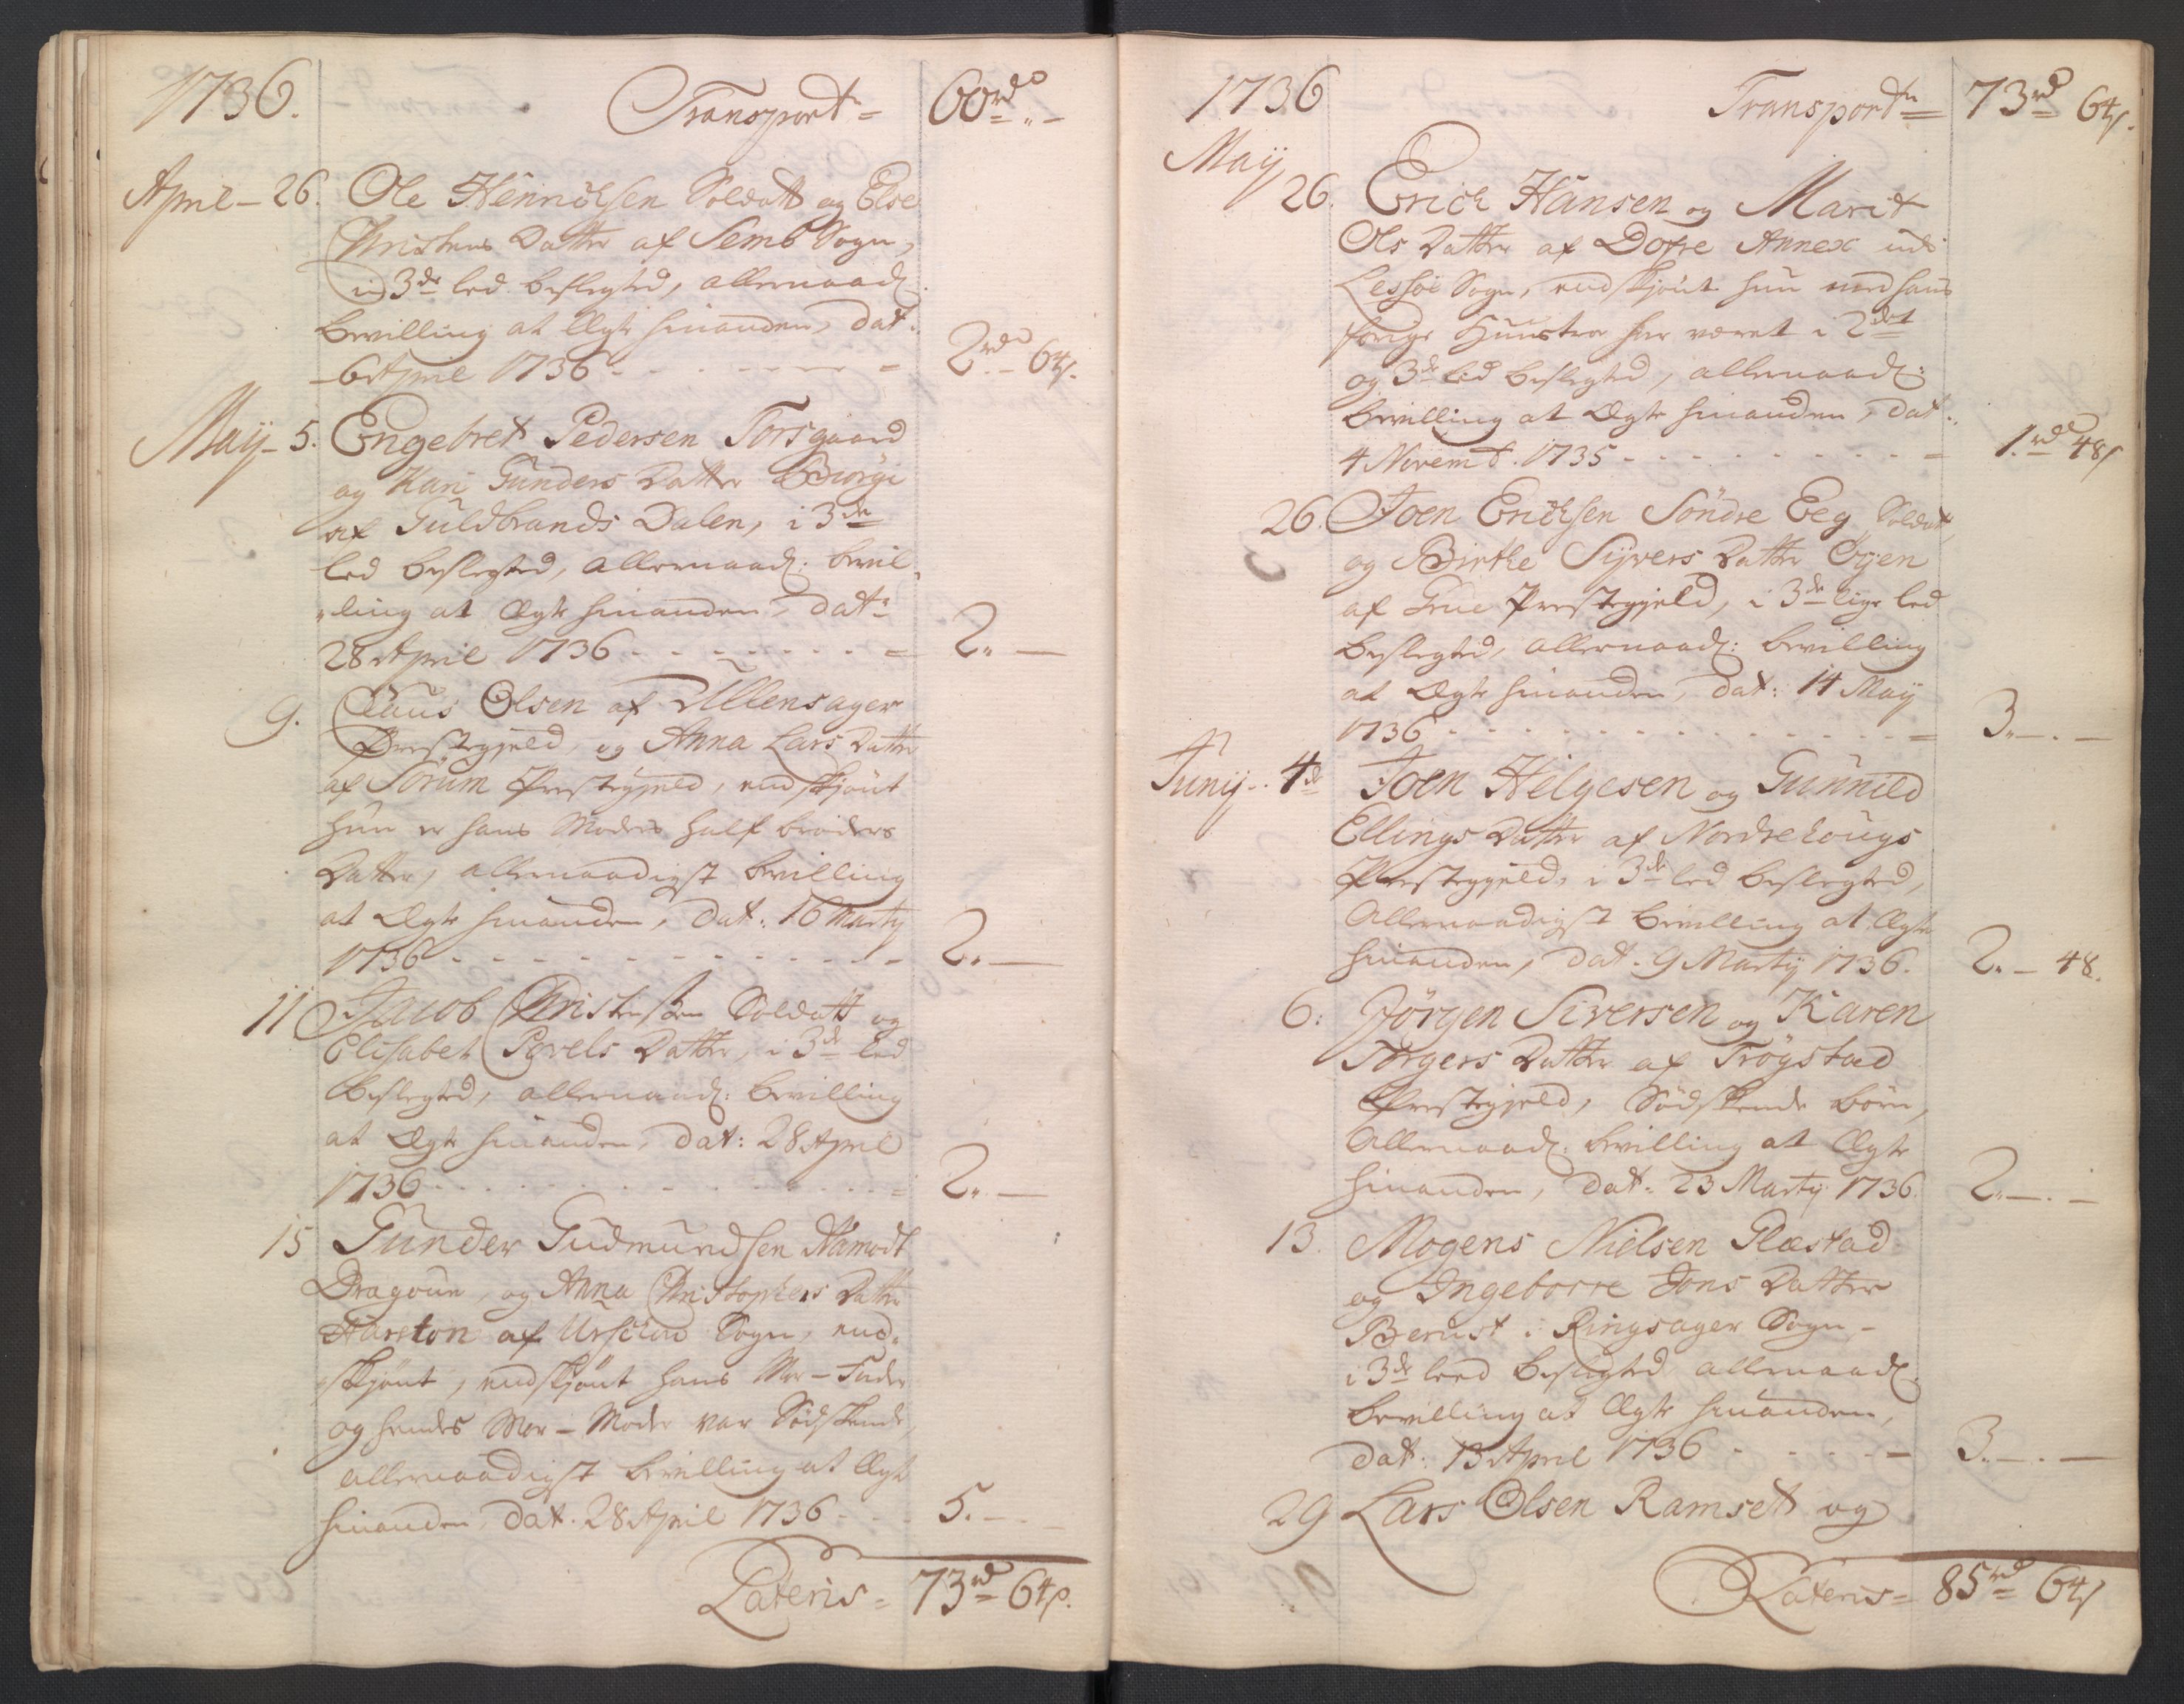 1736. Transport = 60 rd -
April - 26. Ole Henrichsen Soldatt og Else
Christens Datter af Semb Sogn,
i 3de led beslegted, allernaad:
bevilling at Ægte hinanden, dat:
6 April 1736 - - - - = 2 rd - 64 s.
Maij - 5. Engebret Pedersen Torsgaard
og Kari Gunders Datter Biørge
af Guldbrands Dalen, i 3de
led beslegted, allernaad: bevil-
ling at Ægte hinanden, dat:
28 April 1736 - - - - = 2. -
9. Claus Olsen af Ullensager
Prestegjeld, og Anna Lars Datter
af Sørum Prestegjeld, endskjønt
hun er hans Moders half broders
Datter, allernaadigst bevilling
at Ægte hinanden, dat: 16 Martij
1736 - - - - - 2. -
11 Jacob Christensen Soldatt og
Elisabet Povels Datter, i 3de led
beslegted, allernaad: bevilling
at Ægte hinanden, dat: 28 April
1736 - - - - = 2. -
15 Gunder Gudmundsen Aamodt
Dragoun, og Anna Christophers Datter
Harston af Urschou Sogn, end-
skjønt, endskjønt hans Mor-Fader
og hendes Mor-Moder var Sødskende,
allernaadigst bevilling at Ægte
hinanden, dat. 28 April 1736 - - 5. -
Lateris = 73 rd 64 s.
1736 Transport = 73 rd 64 s.
Maij
26. Erich Hansen og Marit
Ols Datter af Dofre Annex udi
Lessøe Sogn, endskjønt hun med hans
forige Hunstroe har været i 2det
og 3de led beslegted, allernaad:
bevilling at Ægte hinanden, dat:
4 Novemb. 1735 - - - - = 1. rd 48 s
26. Joen Erichsen Søndre Eeg Soldatt,
og Birthe Sijvers Datter Øyen
af Grue Prestegjeld, i 3de lige led
beslegted, allernaad: bevilling
at Ægte hinanden, dat: 14 Maij
1736 - - - - = 3. - . -
Junij - 4de Joen Helgesen og Gunnild
Ellings Datter af Nordrehougs
Prestegjeld, i 3de led beslegted,
Allernaadigst bevilling at Ægte
hinanden, dat. 9 Martij 1736. 2. - 48.
6: Jørgen Siversen og Karen
Torgers Datter af Trøgstad
Prestegjeld, Sødskende børn,
Allernaad: bevilling at Ægte
hinanden, dat: 23 Martij 1736. 2. - . -
13. Mogens Nielsen Glæstad
og Ingeborre Jons Datter
Berust i Ringsager Sogn -
i 3de leed beslegted allernaad:
bevilling at Ægte hinanden,
dat: 13 April 1736 - - - - 3. - . -
29 Lars Olsen Ramsett og
Lateris = 85 rd 64 s